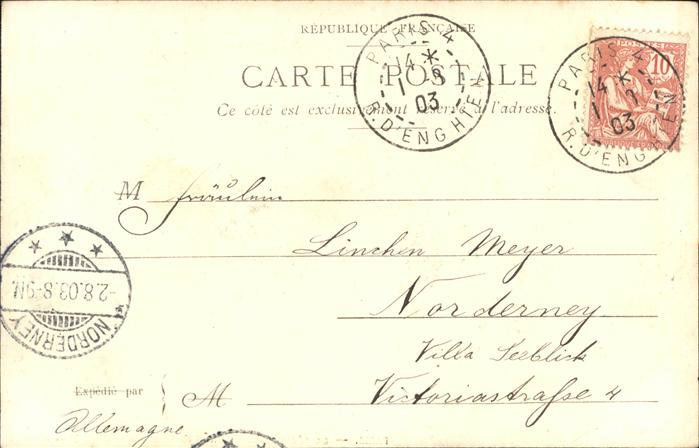 RÉPUBLIQUE FRANÇAISE
CARTE POSTALE
Ce côté est exclusivement réservé à l'adresse.
PARIS 4
14 *
1 - 8
03
R. D'ENGHIEN
PARIS 4
14 *
1 - 8
03
R. D'ENGHIEN
POSTES
10
M fräulein
Linchen Meyer
Norderney
Villa Seeblick
Victoriastraße 4
Expédié par M
Allemagne
-2.8.03.8-9N.
* NORDERNEY